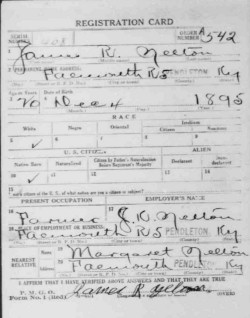 REGISTRATION CARD
SERIAL NUMBER 408 ORDER NUMBER A 542
1 James R. Melton
2 PERMANENT HOME ADDRESS:
Falmouth R5 PENDLETON Ky
Age in Years Date of Birth
3 20 Dec 4 1895
RACE
White Negro Oriental Indian
Citizen Noncitizen
5 ✓ 6 7 8 9
U. S. CITIZEN ALIEN
Native Born Naturalized Citizen by Father's Naturalization Before Registrant's Majority Declarant Non-declarant
10 ✓ 11 12 13 14
15 If not a citizen of the U. S., of what nation are you a citizen or subject?
PRESENT OCCUPATION EMPLOYER'S NAME
16 Farmer 17 J. D. Melton
18 PLACE OF EMPLOYMENT OR BUSINESS:
Falmouth R5 PENDLETON, Ky
NEAREST RELATIVE
Name 19 Margaret Melton
Address 20 Falmouth PENDLETON Ky
I AFFIRM THAT I HAVE VERIFIED ABOVE ANSWERS AND THAT THEY ARE TRUE
P. M. G. O.
Form No. 1 (Red) James R Melton